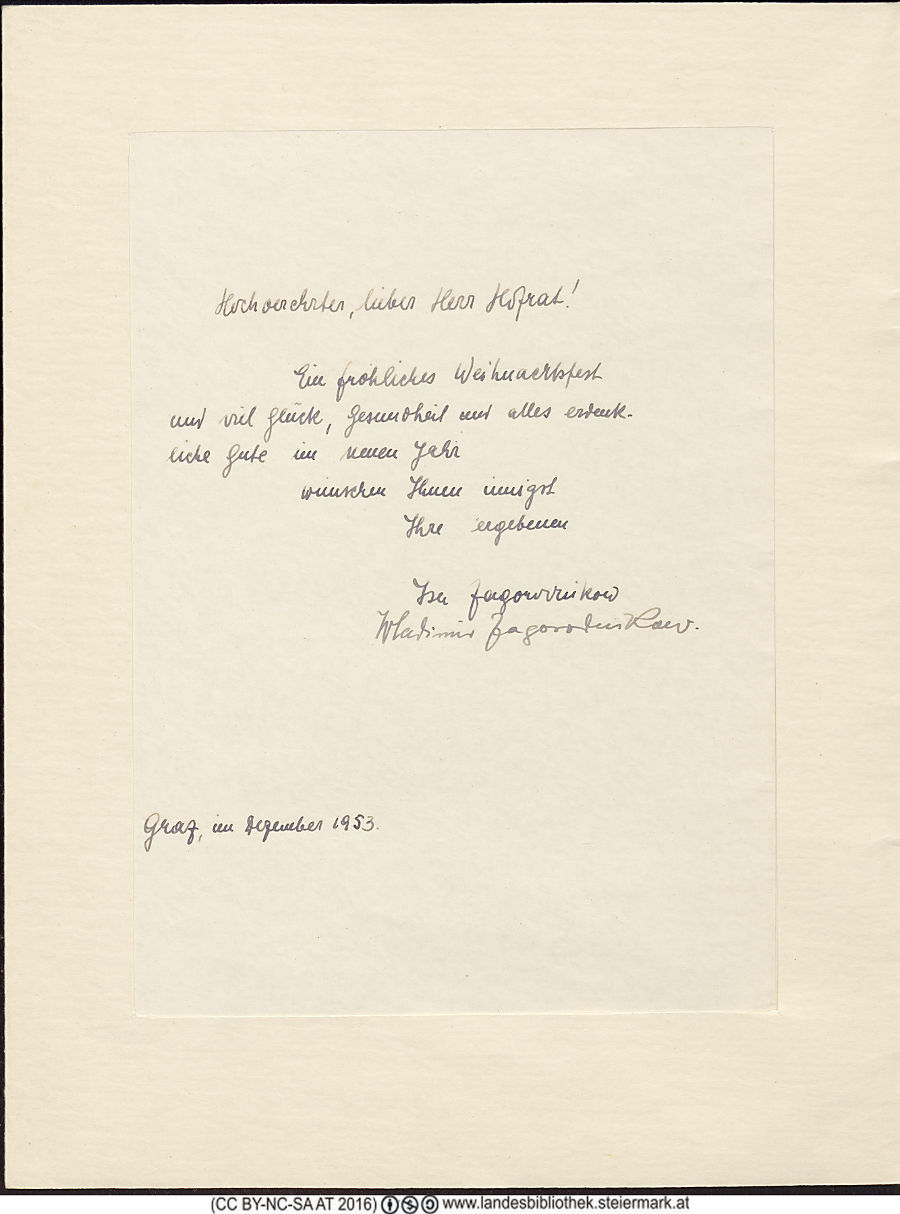 Hochverehrter, lieber Herr Hofrat!
Ein fröhliches Weihnachtsfest
und viel Glück, Gesundheit und alles erdenk-
liche Gute im neuen Jahr
wünschen Ihnen innigst
Ihre ergebenen
Isa Zagorodnikow
Wladimir Zagorodnikow.
Graz, im Dezember 1953.
(CC BY-NC-SA AT 2016) www.landesbibliothek.steiermark.at